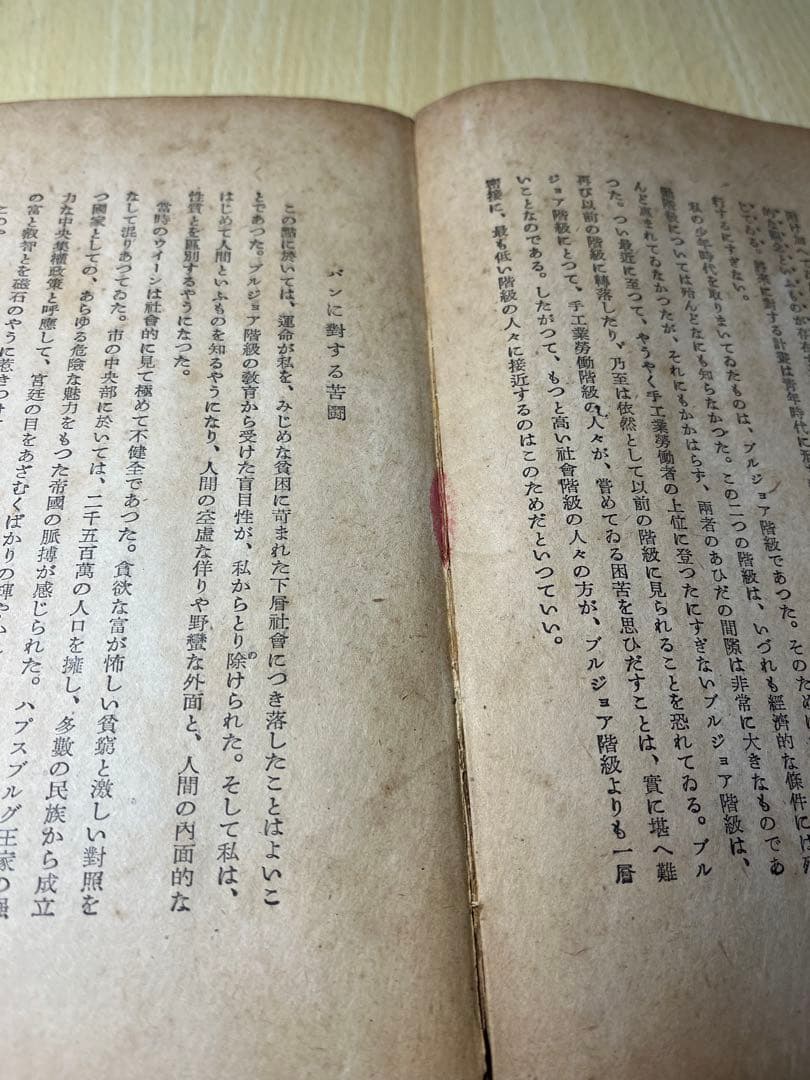 いてゐる。將來に對する計畫は青年時代に
行するにすぎない。
私の少年時代を取りまいてゐたものは、ブルジョア階級であつた。そのため
階級については殆んどなにも知らなかつた。この二つの階級は、いづれも經濟的な條件には殆
んど惠まれてゐなかつたが、それにもかかはらず、兩者のあひだの間隙は非常に大きなものであ
つた。つい最近に至つて、やうやく手工業勞働者の上位に登つたにすぎないブルジョア階級は、
再び以前の階級に轉落したり、乃至は依然として以前の階級に見られることを恐れてゐる。ブル
ジョア階級にとつて、手工業勞働階級の人々が、嘗めてゐる困苦を思ひだすことは、實に堪へ難
いことなのである。したがつて、もつと高い社會階級の人々の方が、ブルジョア階級よりも一層
密接に、最も低い階級の人々に接近するのはこのためだといつていい。
パンに對する苦鬪
この點に於いては、運命が私を、みじめな貧困に苛まれた下層社會につき落したことはよいこ
とであつた。ブルジョア階級の敎育から受けた盲目性が、私からとり除けられた。そして私は、
はじめて人間といふものを知るやうになり、人間の空虛な佯りや野蠻な外面と、人間の內面的な
性質とを區別するやうになつた。
當時のウイーンは社會的に見て極めて不健全であつた。貪欲な富が怖しい貧窮と激しい對照を
なして混りあつてゐた。市の中央部に於いては、二千五百萬の人口を擁し、多數の民族から成立
つ國家としての、あらゆる危險な魅力をもつた帝國の脈搏が感じられた。ハプスブルグ王家の强
力な中央集權政策と呼應して、宮廷の目をあざむくばかりの輝やかし
の富と叡智とを磁石のやうに惹きつけ